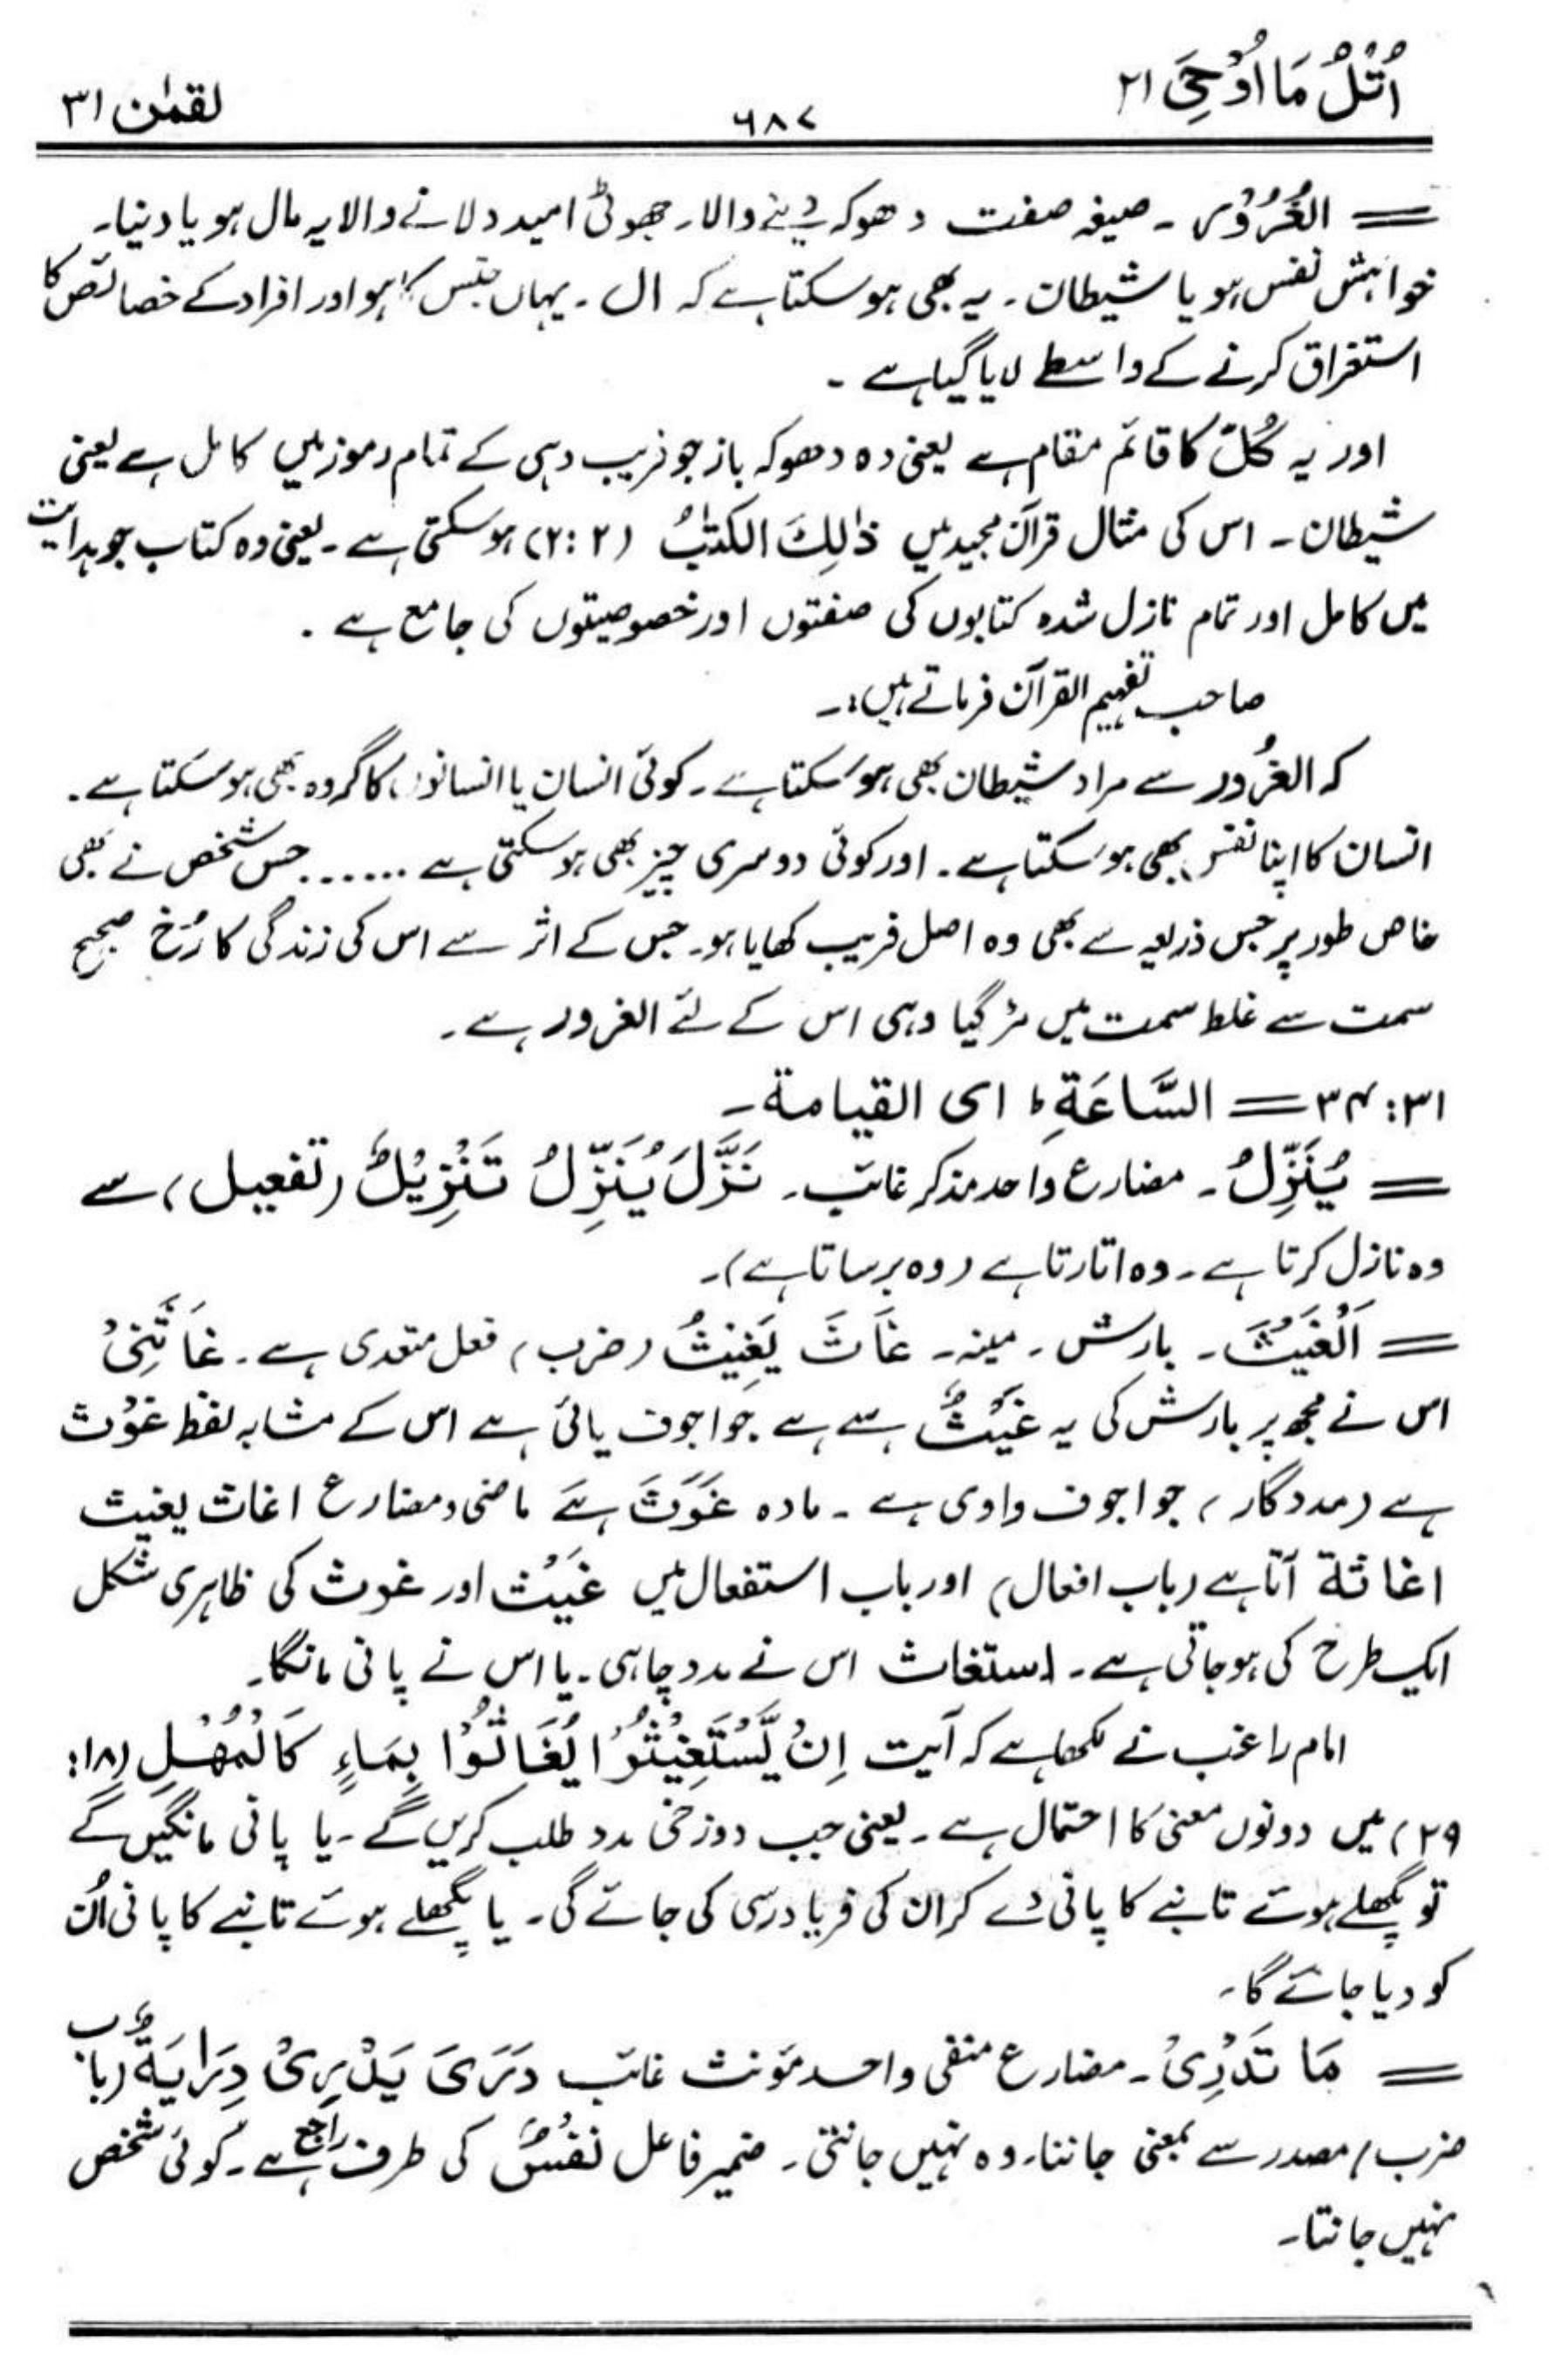 اُتْلُ مَا اُوْحِيَ ۲۱
۶۸۷
لقمٰن ۳۱
= الغُرُوْر ۔ صیغہ صفت دھوکہ دینے والا۔ جھوٹی امید دلانے والا یہ مال ہو یا دنیا۔
خواہش نفس ہو یا شیطان ۔ یہ بھی ہو سکتا ہے کہ ال ۔ یہاں جنس کا ہو اور افراد کے خصائص کا
استغراق کرنے کے واسطے لایا گیا ہے ۔
اور یہ کُلّ کا قائم مقام ہے یعنی وہ دھوکہ باز جو فریب دہی کے تمام رموز میں کامل ہے یعنی
شیطان ۔ اس کی مثال قرآن مجید میں ذٰلِكَ الكتٰبُ (۲:۲) ہو سکتی ہے ۔ یعنی وہ کتاب جو ہدایت
میں کامل اور تمام نازل شدہ کتابوں کی صفتوں اور خصوصیتوں کی جامع ہے ۔
صاحب تفہیم القرآن فرماتے ہیں:۔
کہ الغُرُور سے مراد شیطان بھی ہو سکتا ہے ۔ کوئی انسان یا انسانوں کا گروہ بھی ہو سکتا ہے ۔
انسان کا اپنا نفس بھی ہو سکتا ہے ۔ اور کوئی دوسری چیز بھی ہو سکتی ہے ...... جس شخص نے بھی
خاص طور پر جس ذریعہ سے بھی وہ اصل فریب کھایا ہو۔ جس کے اثر سے اس کی زندگی کا رُخ صحیح
سمت سے غلط سمت میں مڑ گیا وہی اس کے لئے الغرور ہے ۔
۳۱:۳۴ = السَّاعَةِ ط ای القیامۃ ۔
= يُنَزِّلُ ۔ مضارع واحد مذکر غائب ۔ نَزَّلَ يُنَزِّلُ تَنْزِيْلٌ (تفعیل) سے
وہ نازل کرتا ہے ۔ وہ اتارتا ہے (وہ برساتا ہے)۔
= اَلْغَيْثَ ۔ بارش ۔ مینہ ۔ غَاثَ يَغِيْثُ (ضرب) فعل متعدی ہے ۔ غَاثَنِيْ
اس نے مجھ پر بارش کی یہ غَيْثٌ سے ہے جو اجوف یائی ہے اس کے مشابہ لفظ غَوْث
ہے (مددگار) جو اجوف واوی ہے ۔ مادہ غَوَثَ ہے ماضی و مضارع اغاث یغیث
اغاثة آتا ہے (باب افعال) اور باب استفعال میں غَيْث اور غوث کی ظاہری شکل
ایک طرح کی ہو جاتی ہے ۔ استغاث اس نے مدد چاہی ۔ یا اس نے پانی مانگا۔
امام راغب نے لکھا ہے کہ آیت اِنْ يَّسْتَغِيْثُوْا يُغَاثُوْا بِمَاءٍ كَالْمُهْلِ (۱۸:
۲۹) میں دونوں معنی کا احتمال ہے ۔ یعنی جب دوزخی مدد طلب کریں گے ۔ یا پانی مانگیں گے
تو پگھلے ہوئے تانبے کا پانی دے کر ان کی فریاد رسی کی جائے گی ۔ یا پگھلے ہوئے تانبے کا پانی اُن
کو دیا جائے گا۔
= مَا تَدْرِيْ ۔ مضارع منفی واحد مؤنث غائب دَرَىَ يَدْرِىْ دِرَايَةٌ (باب
ضرب) مصدر سے بمعنی جاننا۔ وہ نہیں جانتی ۔ ضمیر فاعل نَفْسٌ کی طرف راجع ہے ۔ کوئی شخص
نہیں جانتا۔